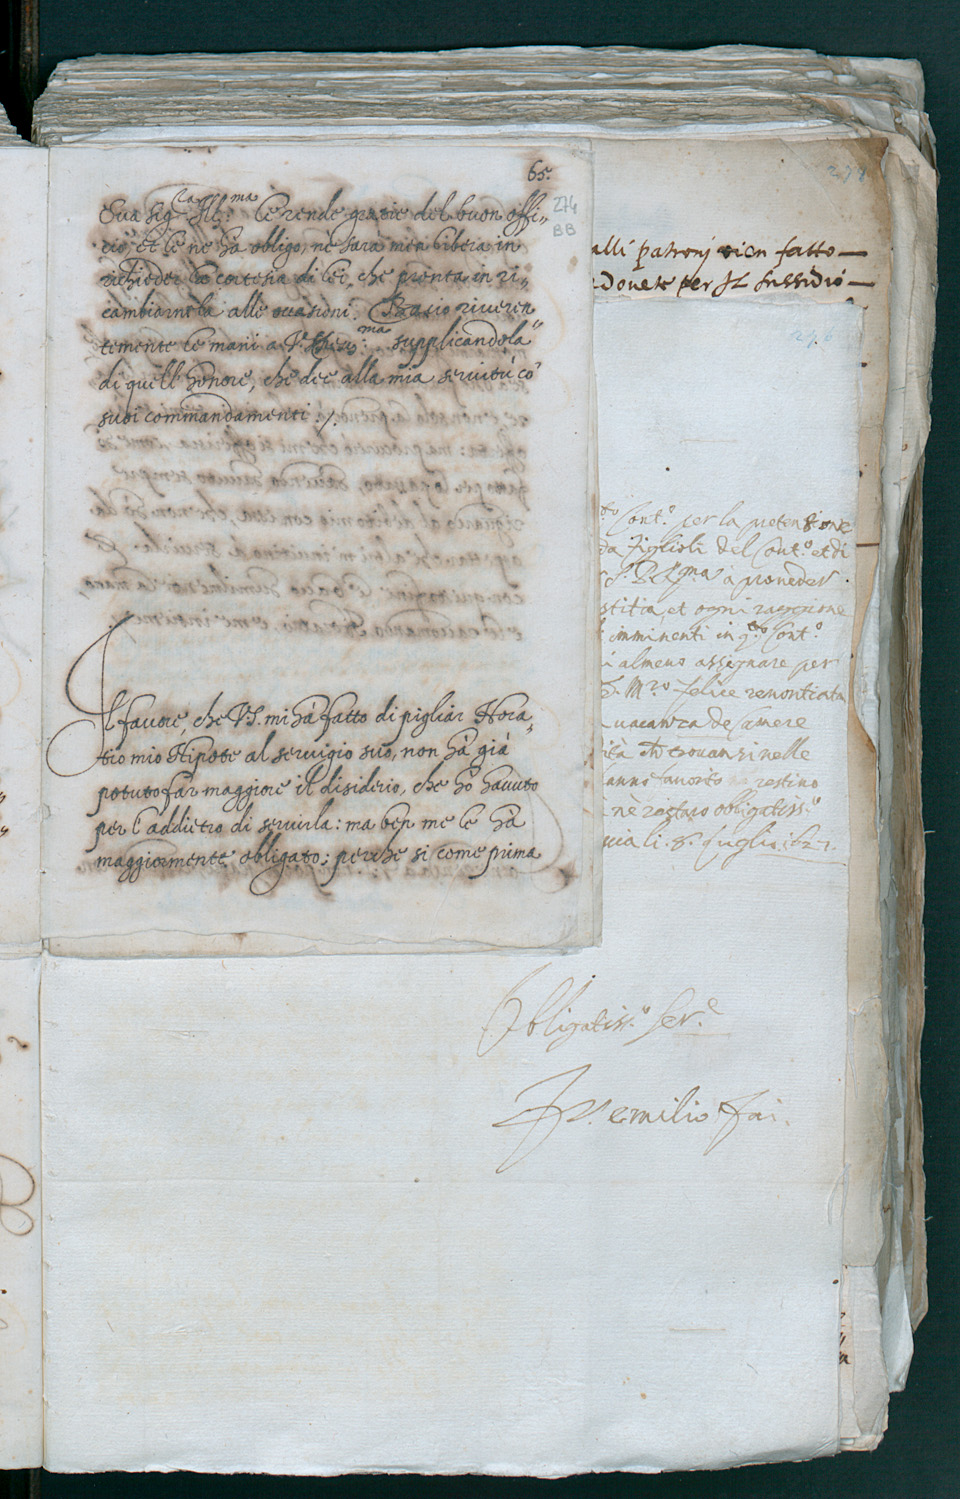 65.
274
BB
Sua Sig.ria Ill.ma le rende grazie del buon offi-
cio, et le ne hà obligo, nè sarà men libera in
richieder la cortesia di lei, che pronta in ri-
cambiarnela alle occasioni. Bacio riveren
temente le mani a V. supplicandola
di quell'honore, che dee alla mia servitù cò
suoi commandamenti ./.
Il favore, che V.S. mi hà fatto di pigliar Hora-
tio mio Nipote al servigio suo, non hà già
potuto far maggiore il disiderio, che hò havuto
per l'addietro di servirla: ma ben me le hà
maggiormente obligato; perche si come prima
278
alli patroni vien fatto
dovete per Il Sussidio
276
Cont.o per la pretensione
figlioli del Cont.o et di
à proveder
stitia, et ogni
imminenti in q.to Cont.o
almeno assegnare per
felice renontiata
vacanza de Camere
trouansi nelle
anno restino
nè restaro obligatiss.o
li. 8. luglio. 1621.
Obligatiss.o Ser.e
emilio